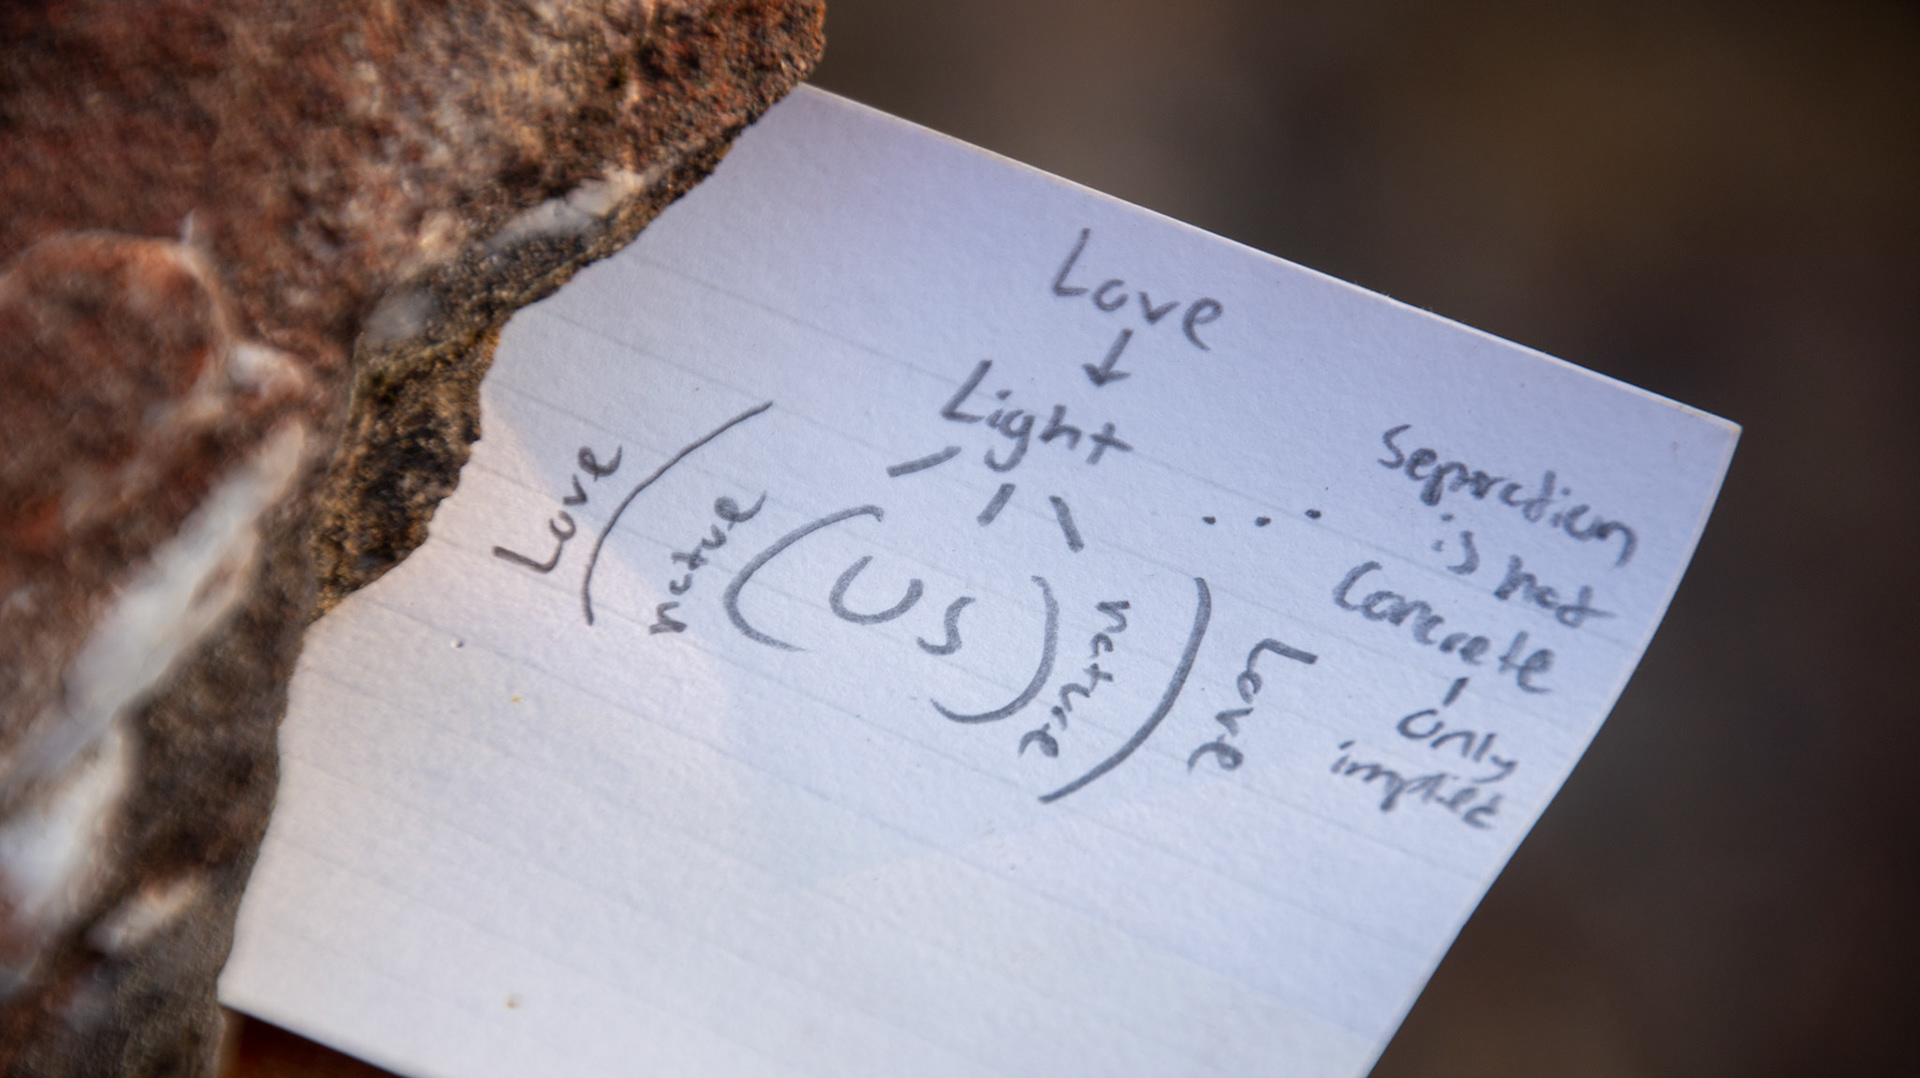 Love
↓
Light
Love ( nature ( US ) nature ) Love
...
Separation
is not
Concrete
only
implied